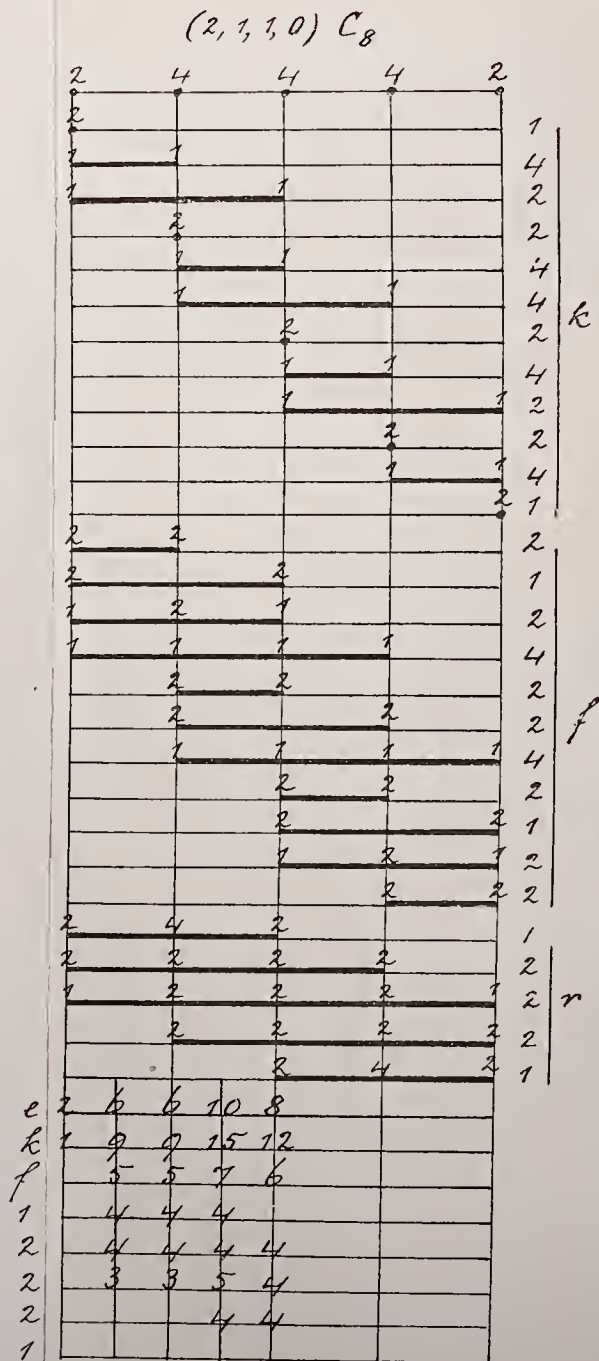 (2, 1, 1, 0) C₈
2 4 4 4 2
2 1
1 1 4
1 1 2
2 2
1 1 4
1 1 4
k
2 2
1 1 4
1 1 2
2 2
1 1 4
2 1
2 2 2
2 2 1
1 2 1 2
1 1 1 1 4
2 2 2
2 2 2
f
1 1 1 1 4
2 2 2
2 2 1
1 2 1 2
2 2 2
2 4 2 1
2 2 2 2 2
1 2 2 2 1 2 r
2 2 2 2 2
2 4 2 1
e 2 6 6 10 8
k 1 9 9 15 12
f 5 5 7 6
1 4 4 4
2 4 4 4 4
2 3 3 5 4
2 4 4
1